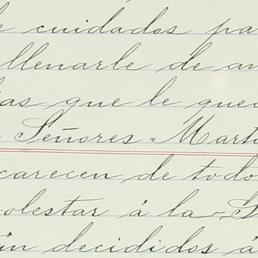 de cuidados pa
llenarle de am
ias que le qued
Señores Marti
carecen de todo
olestar á la S
ún decididos á